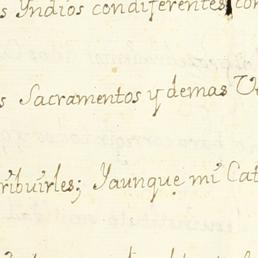 s Yndios condiferentes, con
s Sacramentos y demas V
ribuirles; Yaunque mi Cat